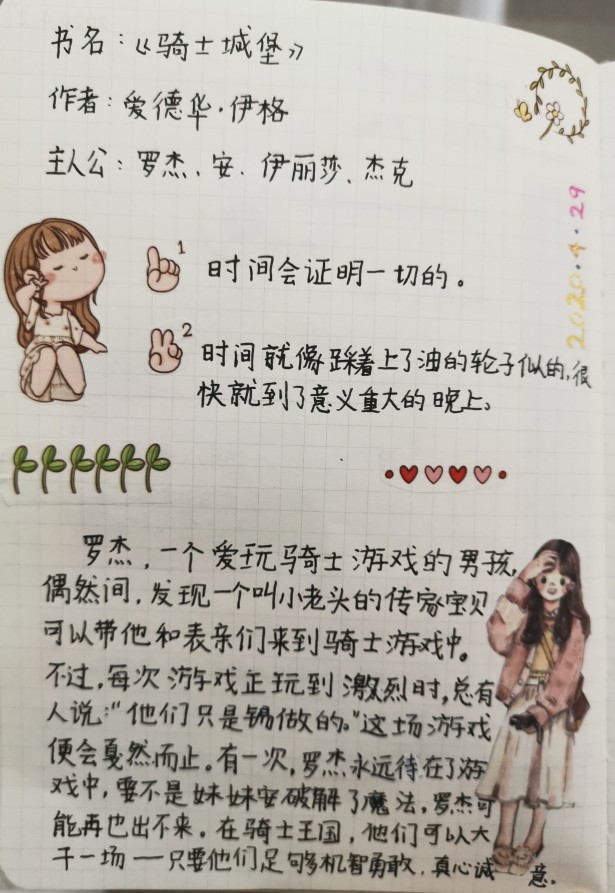 书名：《骑士城堡》
作者：爱德华·伊格
主人公：罗杰、安、伊丽莎、杰克
2020·4·29
1 时间会证明一切的。
2 时间就像踩着上了油的轮子似的，很
快就到了意义重大的晚上。
罗杰，一个爱玩骑士游戏的男孩，
偶然间，发现一个叫小老头的传家宝贝
可以带他和表亲们来到骑士游戏中。
不过，每次游戏正玩到激烈时，总有
人说：“他们只是锡做的。”这场游戏
便会戛然而止。有一次，罗杰永远待在了游
戏中，要不是妹妹安破解了魔法，罗杰可
能再也出不来。在骑士王国，他们可以大
干一场——只要他们足够机智勇敢，真心诚意.